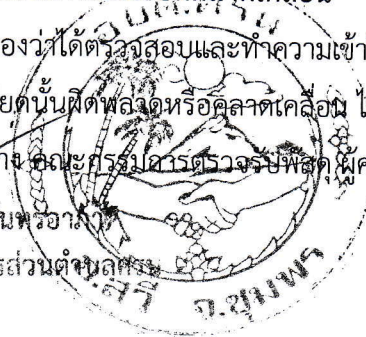 อบต.ครน
องว่าได้ตรวจสอบและทำความเข้า
ยดนั้นผิดพลาดหรือคลาดเคลื่อน ไ
าง คณะกรรมการตรวจรับพัสดุ ผู้ค
นทรอาภา
รส่วนตำบลครน
อ.สวี จ.ชุมพร